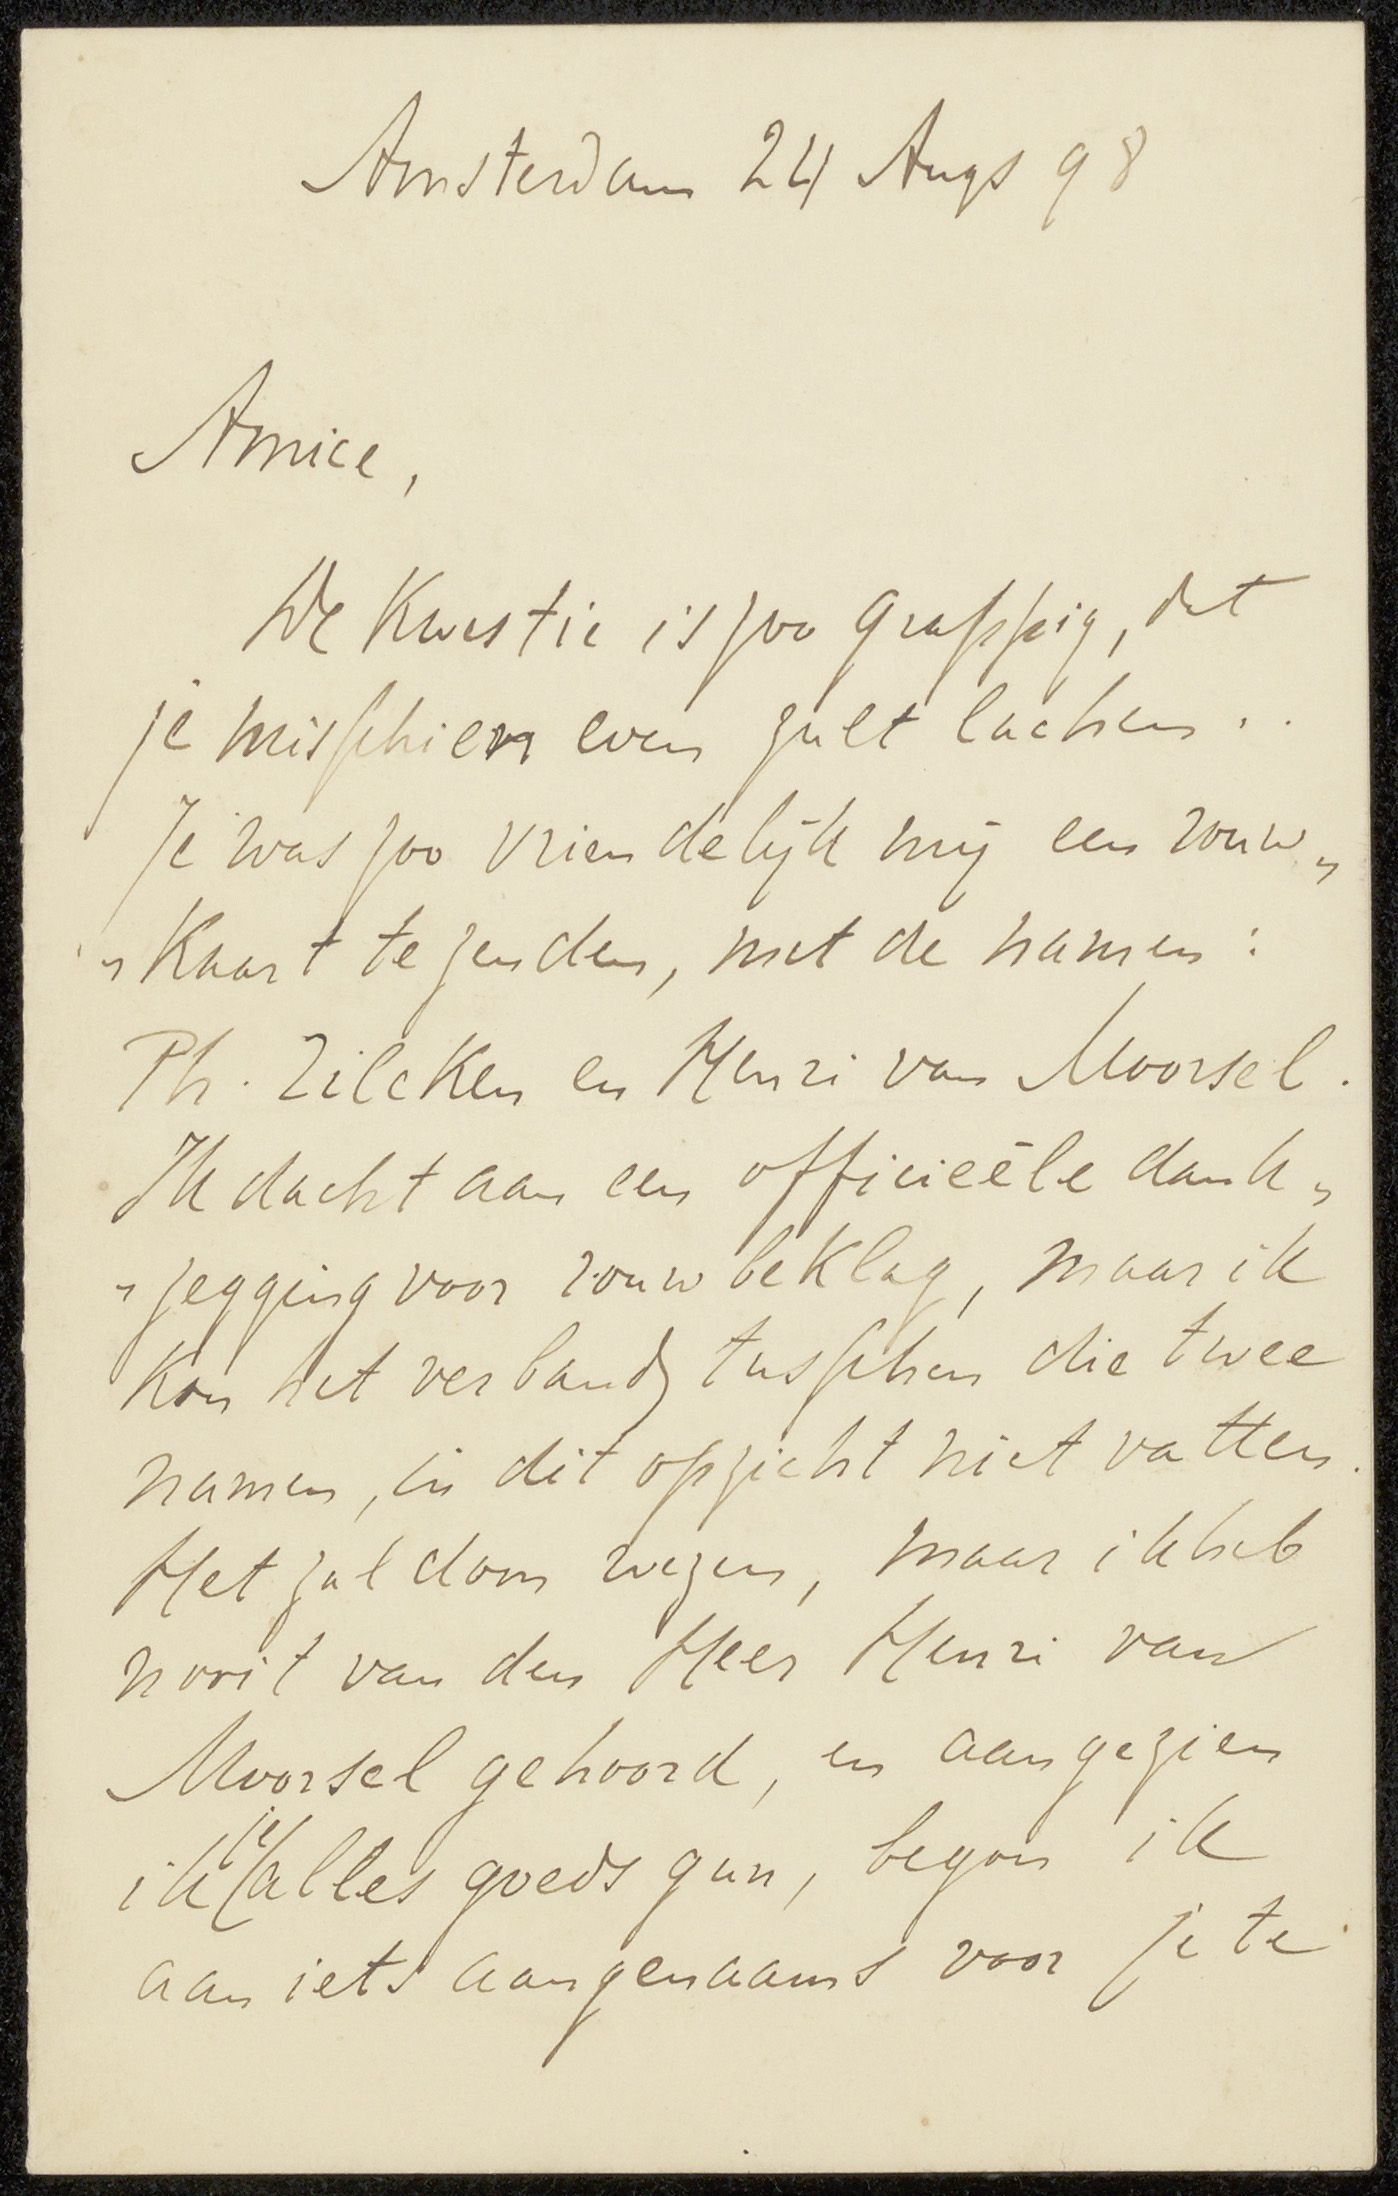 Amsterdam 24 Augs 98
Amice,
De Kwestie is zoo grappig, dat
je misschien even zult lachen..
Je was zoo vriendelijk mij een rouw„
„Kaart te zenden, met de namen:
Ph. Zilcken en Henri van Moorsel.
Ik dacht aan een officieële dank„
„zegging voor rouwbeklag, maar ik
Kon het verband tusschen die twee
namen, in dit opzicht niet vatten.
Het zal dom wezen, maar ik heb
nooit van den Heer Henri van
Moorsel gehoord, en aangezien
ik je alles goeds gun, begon ik
aan iets aangenaams voor je te